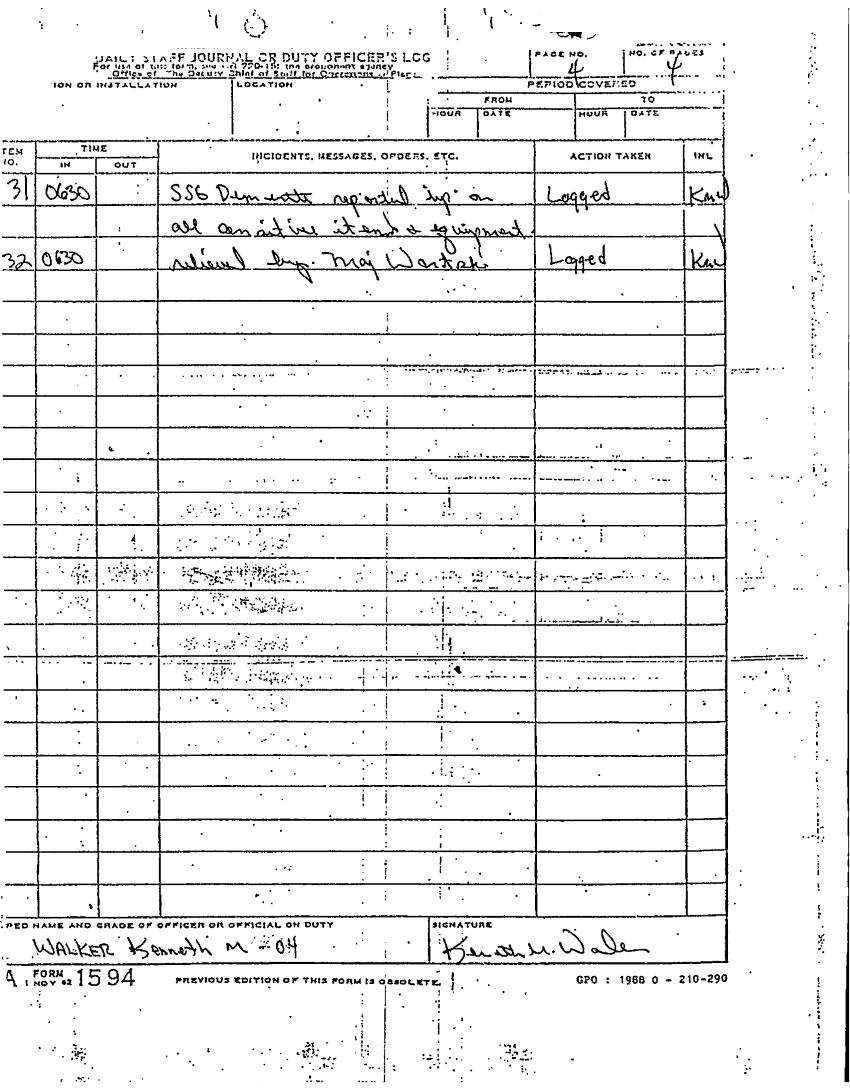 DAILY STAFF JOURNAL OR DUTY OFFICER'S LOG
For use of this form, see 220-15; the proponent agency
Office of The Deputy Chief of Staff for Operations
PAGE NO.
4
NO. OF PAGES
4
ION OR INSTALLATION
LOCATION
PERIOD COVERED
FROM
TO
HOUR
DATE
HOUR
DATE
TEM NO.
TIME
IN
OUT
INCIDENTS, MESSAGES, ORDERS, ETC.
ACTION TAKEN
INL
31 0630 SSG reported up on Logged KMW
all sensitive items & equipment.
32 0630 relieved by Maj Logged KMW
PED NAME AND GRADE OF OFFICER OR OFFICIAL ON DUTY
WALKER Kenneth M - 04
SIGNATURE
Kenneth M. Walker
A FORM 1 NOV 62 1594
PREVIOUS EDITION OF THIS FORM IS OBSOLETE.
GPO : 1988 0 - 210-290